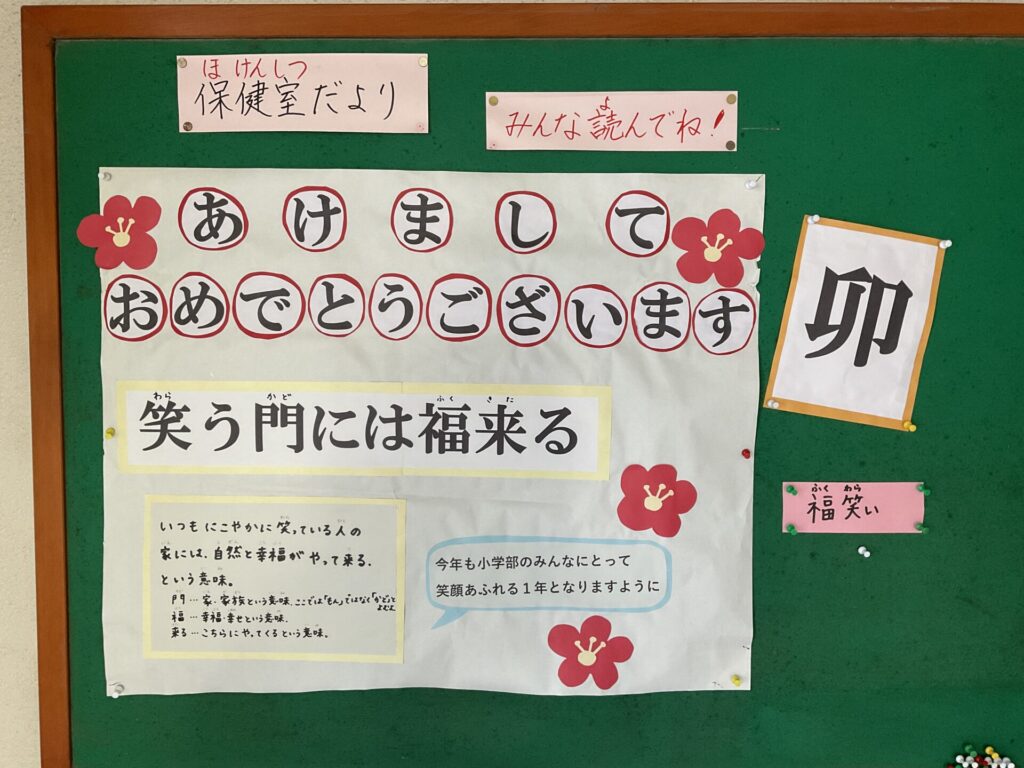 ほけんしつ
保健室だより
よ
みんな読んでね!
あけまして
おめでとうございます
卯
わら かど ふく きた
笑う門には福来る
いつもにこやかに笑っている人の
家には、自然と幸福がやって来る.
という意味。
門…家・家族という意味.ここでは「もん」ではなく「かど」とよむよ
福…幸福・幸せという意味.
来る…こちらにやってくるという意味。
今年も小学部のみんなにとって
笑顔あふれる1年となりますように
ふく わら
福笑い